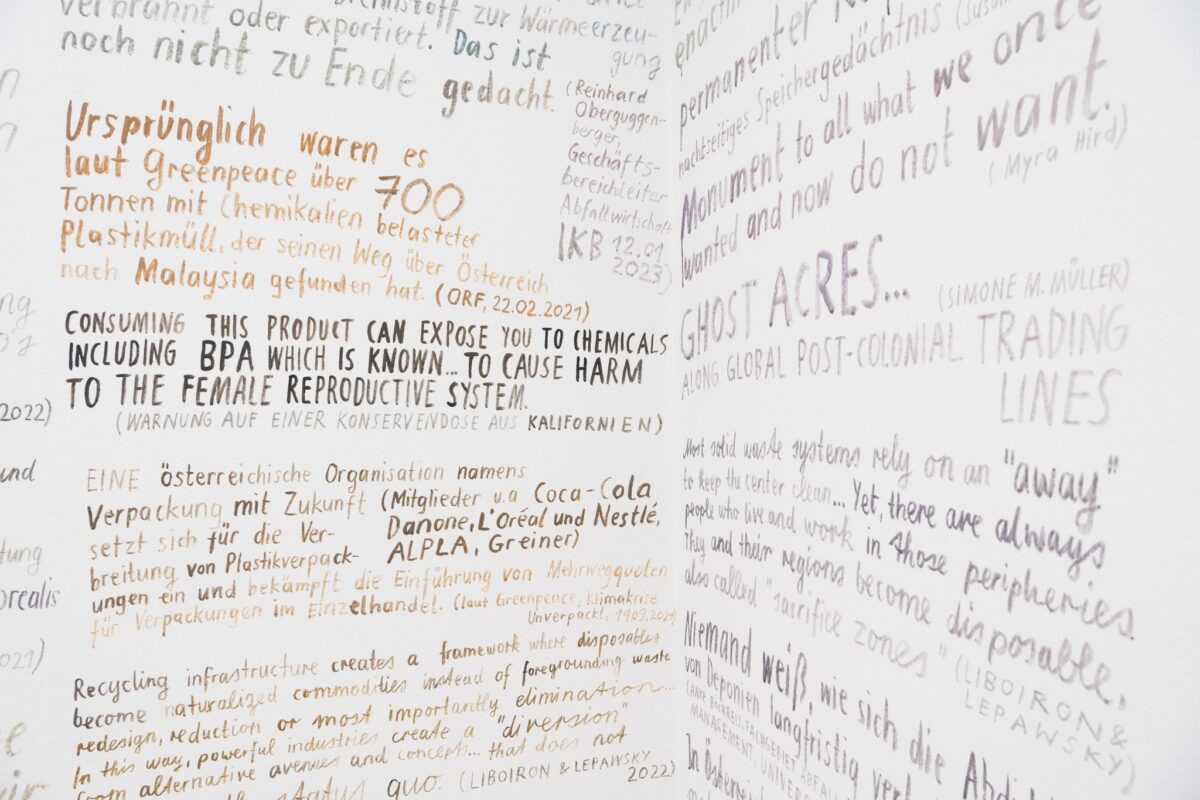 verbrannt oder exportiert. Das ist
noch nicht zu Ende gedacht.
zur Wärmeerzeu-
gung
(Reinhard
Oberguggen-
berger,
Geschäfts-
bereichleiter
Abfallwirtschaft
IKB 12.01
2023)
Ursprünglich waren es
laut Greenpeace über 700
Tonnen mit Chemikalien belasteter
Plastikmüll, der seinen Weg über Österreich
nach Malaysia gefunden hat. (ORF, 22.02.2021)
CONSUMING THIS PRODUCT CAN EXPOSE YOU TO CHEMICALS
INCLUDING BPA WHICH IS KNOWN... TO CAUSE HARM
TO THE FEMALE REPRODUCTIVE SYSTEM.
(WARNUNG AUF EINER KONSERVENDOSE AUS KALIFORNIEN)
EINE österreichische Organisation namens
Verpackung mit Zukunft (Mitglieder u.a Coca-Cola,
Danone, L'Oréal und Nestlé,
ALPLA, Greiner)
setzt sich für die Ver-
breitung von Plastikverpack-
ungen ein und bekämpft die Einführung von Mehrwegquoten
für Verpackungen im Einzelhandel. (laut Greenpeace, Klimakrise
Unverpackt,
Recycling infrastructure creates a framework where disposables
become naturalized commodities instead of foregrounding waste
redesign, reduction or most importantly elimination...
In this way, powerful industries create a "diversion"
from alternative avenues and concepts... that does not
status quo. (LIBOIRON & LEPAWSKY
2022)
2022)
und
tung
orealis
2021)
permanenter
nachtseitiges Speichergedächtnis
Monument to all what we once
wanted and now do not want.
(Myra Hird)
GHOST ACRES... (SIMONE M. MÜLLER)
ALONG GLOBAL POST-COLONIAL TRADING
LINES
Most solid waste systems rely on an "away"
to keep the center clean... Yet, there are always
people who live and work in those peripheries.
They and their regions become disposable,
also called "sacrifice zones" (LIBOIRON &
LEPAWSKY)
Niemand weiß, wie sich die
von Deponien langfristig
MANAGEMENT,